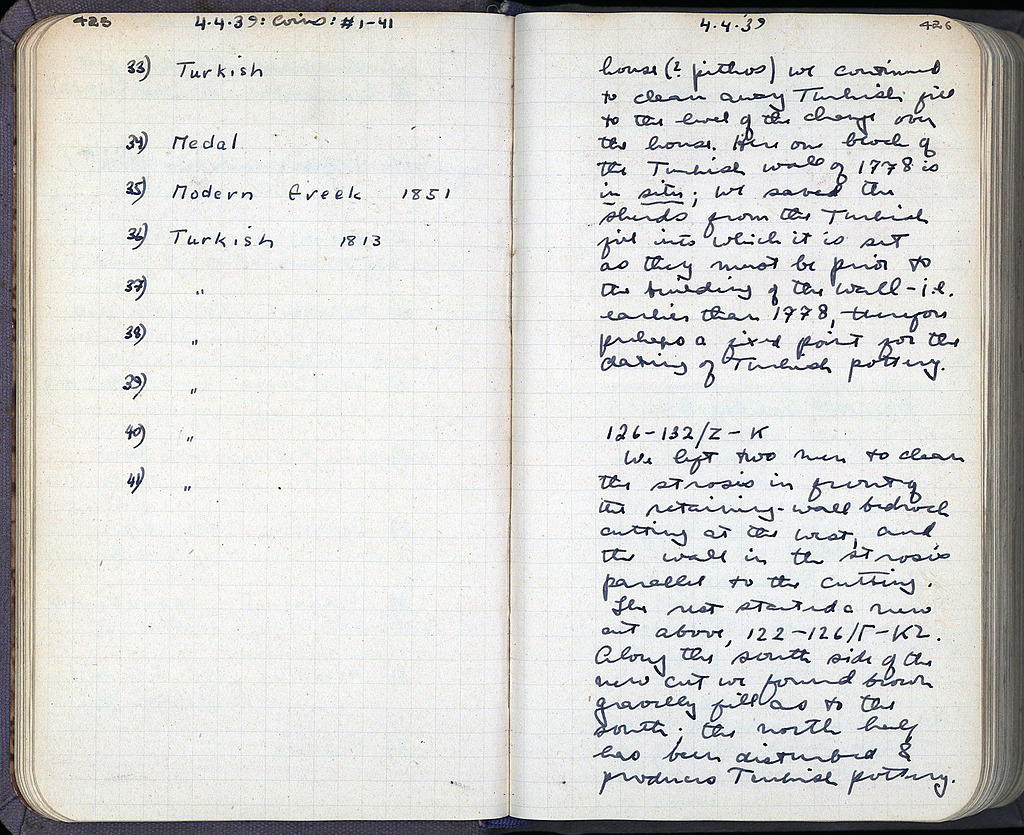 425 4.4.39: Coins: #1-41
33) Turkish
34) Medal
35) Modern Greek 1851
36) Turkish 1813
37) "
38) "
39) "
40) "
41) "
4.4.39 426
house (? pithos) we continued
to clean away Turkish fill
to the level of the change over
the house. Here one block of
the Turkish wall of 1778 is
in situ; we saved the
sherds from the Turkish
fill into which it is set
as they must be prior to
the building of the wall - i.e.
earlier than 1778, therefore
perhaps a fixed point for the
dating of Turkish pottery.
126-132/Z-K
We left two men to clean
the strosis in front of
the retaining-wall bedrock
cutting at the west, and
the wall in the strosis
parallel to the cutting.
The rest started a new
cut above, 122-126/Γ-K2.
Along the south side of the
new cut we found brown
gravelly fill as to the
south; the north half
has been disturbed &
produces Turkish pottery.